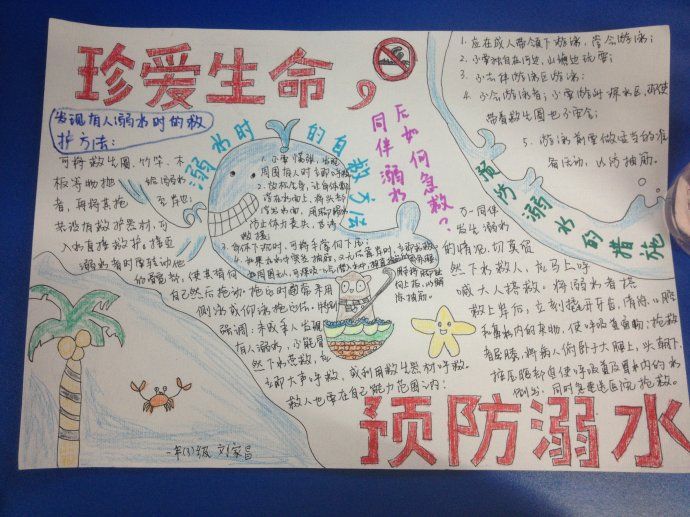 珍爱生命，
发现有人溺水时的救
护方法：
可将救生圈、竹竿、木
板等物抛
给溺水
者，再将其拖
至岸边；
若没有救护器材，可
入水直接救护。接近
溺水者时要转动他
的髋部，使其背向
自己然后拖动。拖运时通常采用
侧泳或仰泳拖运法。特别
强调：未成年人发现
有人溺水，不能冒
然下水营救，应
立即大声呼救，或利用救生器材呼救。
救人也要在自己能力范围之内！
溺水时的自救方法
1、不要慌张，发现
周围有人时立即呼救
2、放松全身，让身体飘
浮在水面上，将头部
浮出水面，用脚踢水
3、身体下沉时，可将手掌向下压；
同伴溺水
后如何急救？
万一同伴
发生溺水
的情况，切莫贸
然下水救人，应马上呼
喊大人搭救。将溺水者搭
救上岸后，立刻撬开牙齿，清除口腔
和鼻内的杂物，使呼吸道畅通；抢救
者屈膝，将病人俯卧于大腿上，头朝下，
按压腹部迫使呼吸道及胃内的水
倒出；同时急速送医院抢救。
1、应在成人带领下游泳，学会游泳；
2、不要独自在河边、山塘边玩耍；
3、不去非游泳区游泳；
4、不会游泳者，不要游到深水区，即使
带着救生圈也不安全；
5、游泳前要做适当的准
备活动，以防抽筋。
预防溺水的措施
一年(3)级 刘家昌
预防溺水